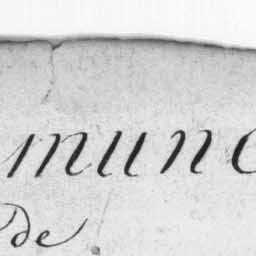 mune
de